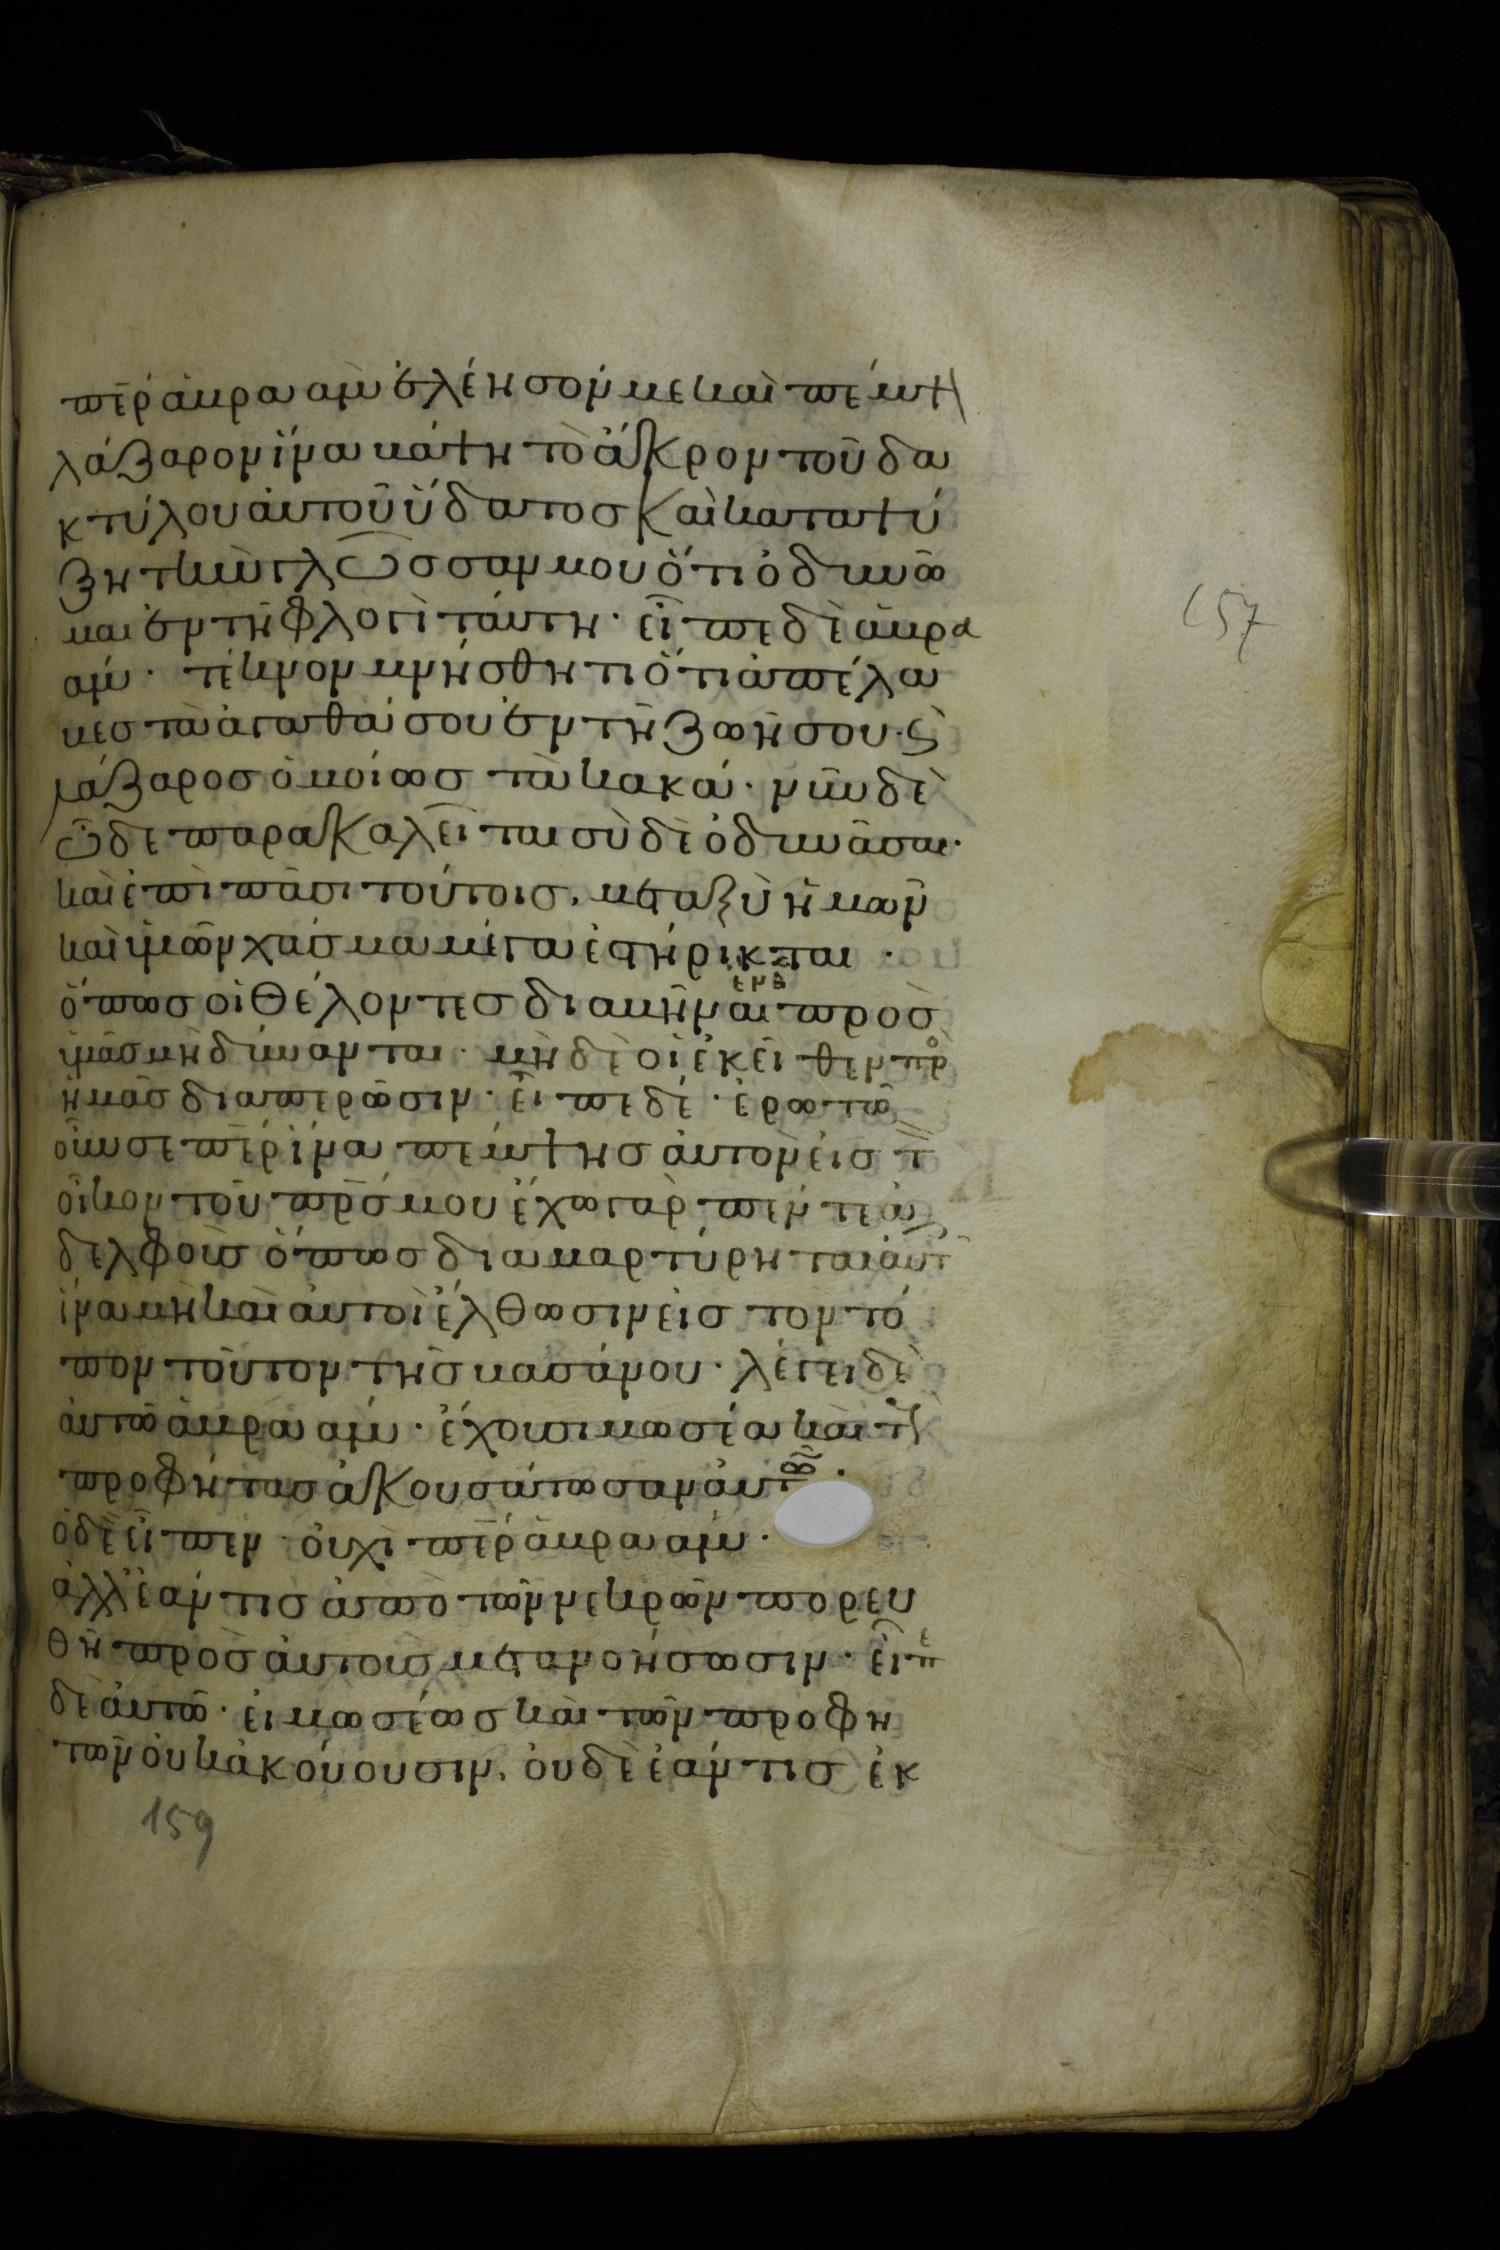 πε̄ρ ἀβραὰμ ἐλέησόν με καὶ πέμψ
λάζαρον ἵνα βάψη τὸ ἄκρον τοῦ δα
κτύλου αὐτοῦ ὕδατος καὶ καταψύ
ξη τὴν γλῶσσαν μου ὅτι ὀδυνῶ
μαι ἐν τῆ φλογὶ ταύτη · εἶπε δὲ ἀβρα
άμ · τέκνον μνήσθητι ὅτι ἀπέλα
βες τὰ ἀγαθά σου ἐν τῆ ζωῆ σου · ϛ̀
λάζαρος ὁμοίως τὰ κακά · νῦν δὲ
ὧδε παρακαλεῖται σὺ δὲ ὀδυνᾶσαι ·
καὶ ἐπὶ πᾶσι τούτοις, μεταξὺ ἡμῶν
καὶ ὑμῶν χάσμα μέγα ἐστήρικται ·
ὅπως οἱ θέλοντες διαβῆναι ἔνθεν πρὸς
ὑμᾶς μὴ δύνανται · μὴ δὲ οἱ ἐκεῖθεν πρ
ἡμᾶς διαπερῶσιν · εἶπε δέ · ἐρωτῶ
οὖν σε πε̄ρ ἵνα πέμψης αὐτὸν εἰς τ
οἶκον τοῦ πρ̄ς μου ἔχω γὰρ πέντε ἀ
δελφοὺς ὅπως διαμαρτύρηται αὐτ
ἵνα μὴ καὶ αὐτοὶ ἔλθωσιν εἰς τὸν τό
πον τοῦτον τῆς βασάνου · λέγει δὲ
αὐτῶ ἀβραάμ · ἔχουσι μωσέα καὶ τ
προφήτας ἀκουσάτωσαν αὐτῶν ·
ὁ δὲ εἶπεν · οὐχὶ πε̄ρ ἀβραάμ ·
ἀλλ' ἐάν τις ἀπὸ τῶν νεκρῶν πορευ
θῆ πρὸς αὐτοὺς μετανοήσωσιν · εἶπ
δὲ αὐτῶ · εἰ μωσέως καὶ τῶν προφη
τῶν οὐκ ἀκούουσιν, οὐδὲ ἐάν τις ἐκ
157
159